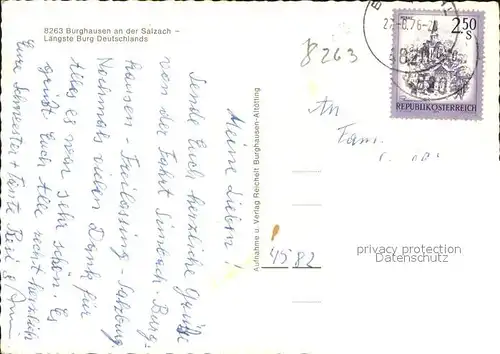 8263 Burghausen an der Salzach –
Längste Burg Deutschlands
Meine Lieben!
Sende Euch, herzliche Grüße
von der Fahrt Simbach-Burg-
hausen-Freilassing-Salzburg.
Nochmals vielen Dank für
Alles es war sehr schön. Es
grüßt Euch Alle recht herzlich
Eure Schwester + Tante
Aufnahme u. Verlag Reichelt Burghausen-Altötting
8263
An
Fam.
4582
27.-8.76-
2.50
S
REPUBLIK ÖSTERREICH
privacy protection
Datenschutz